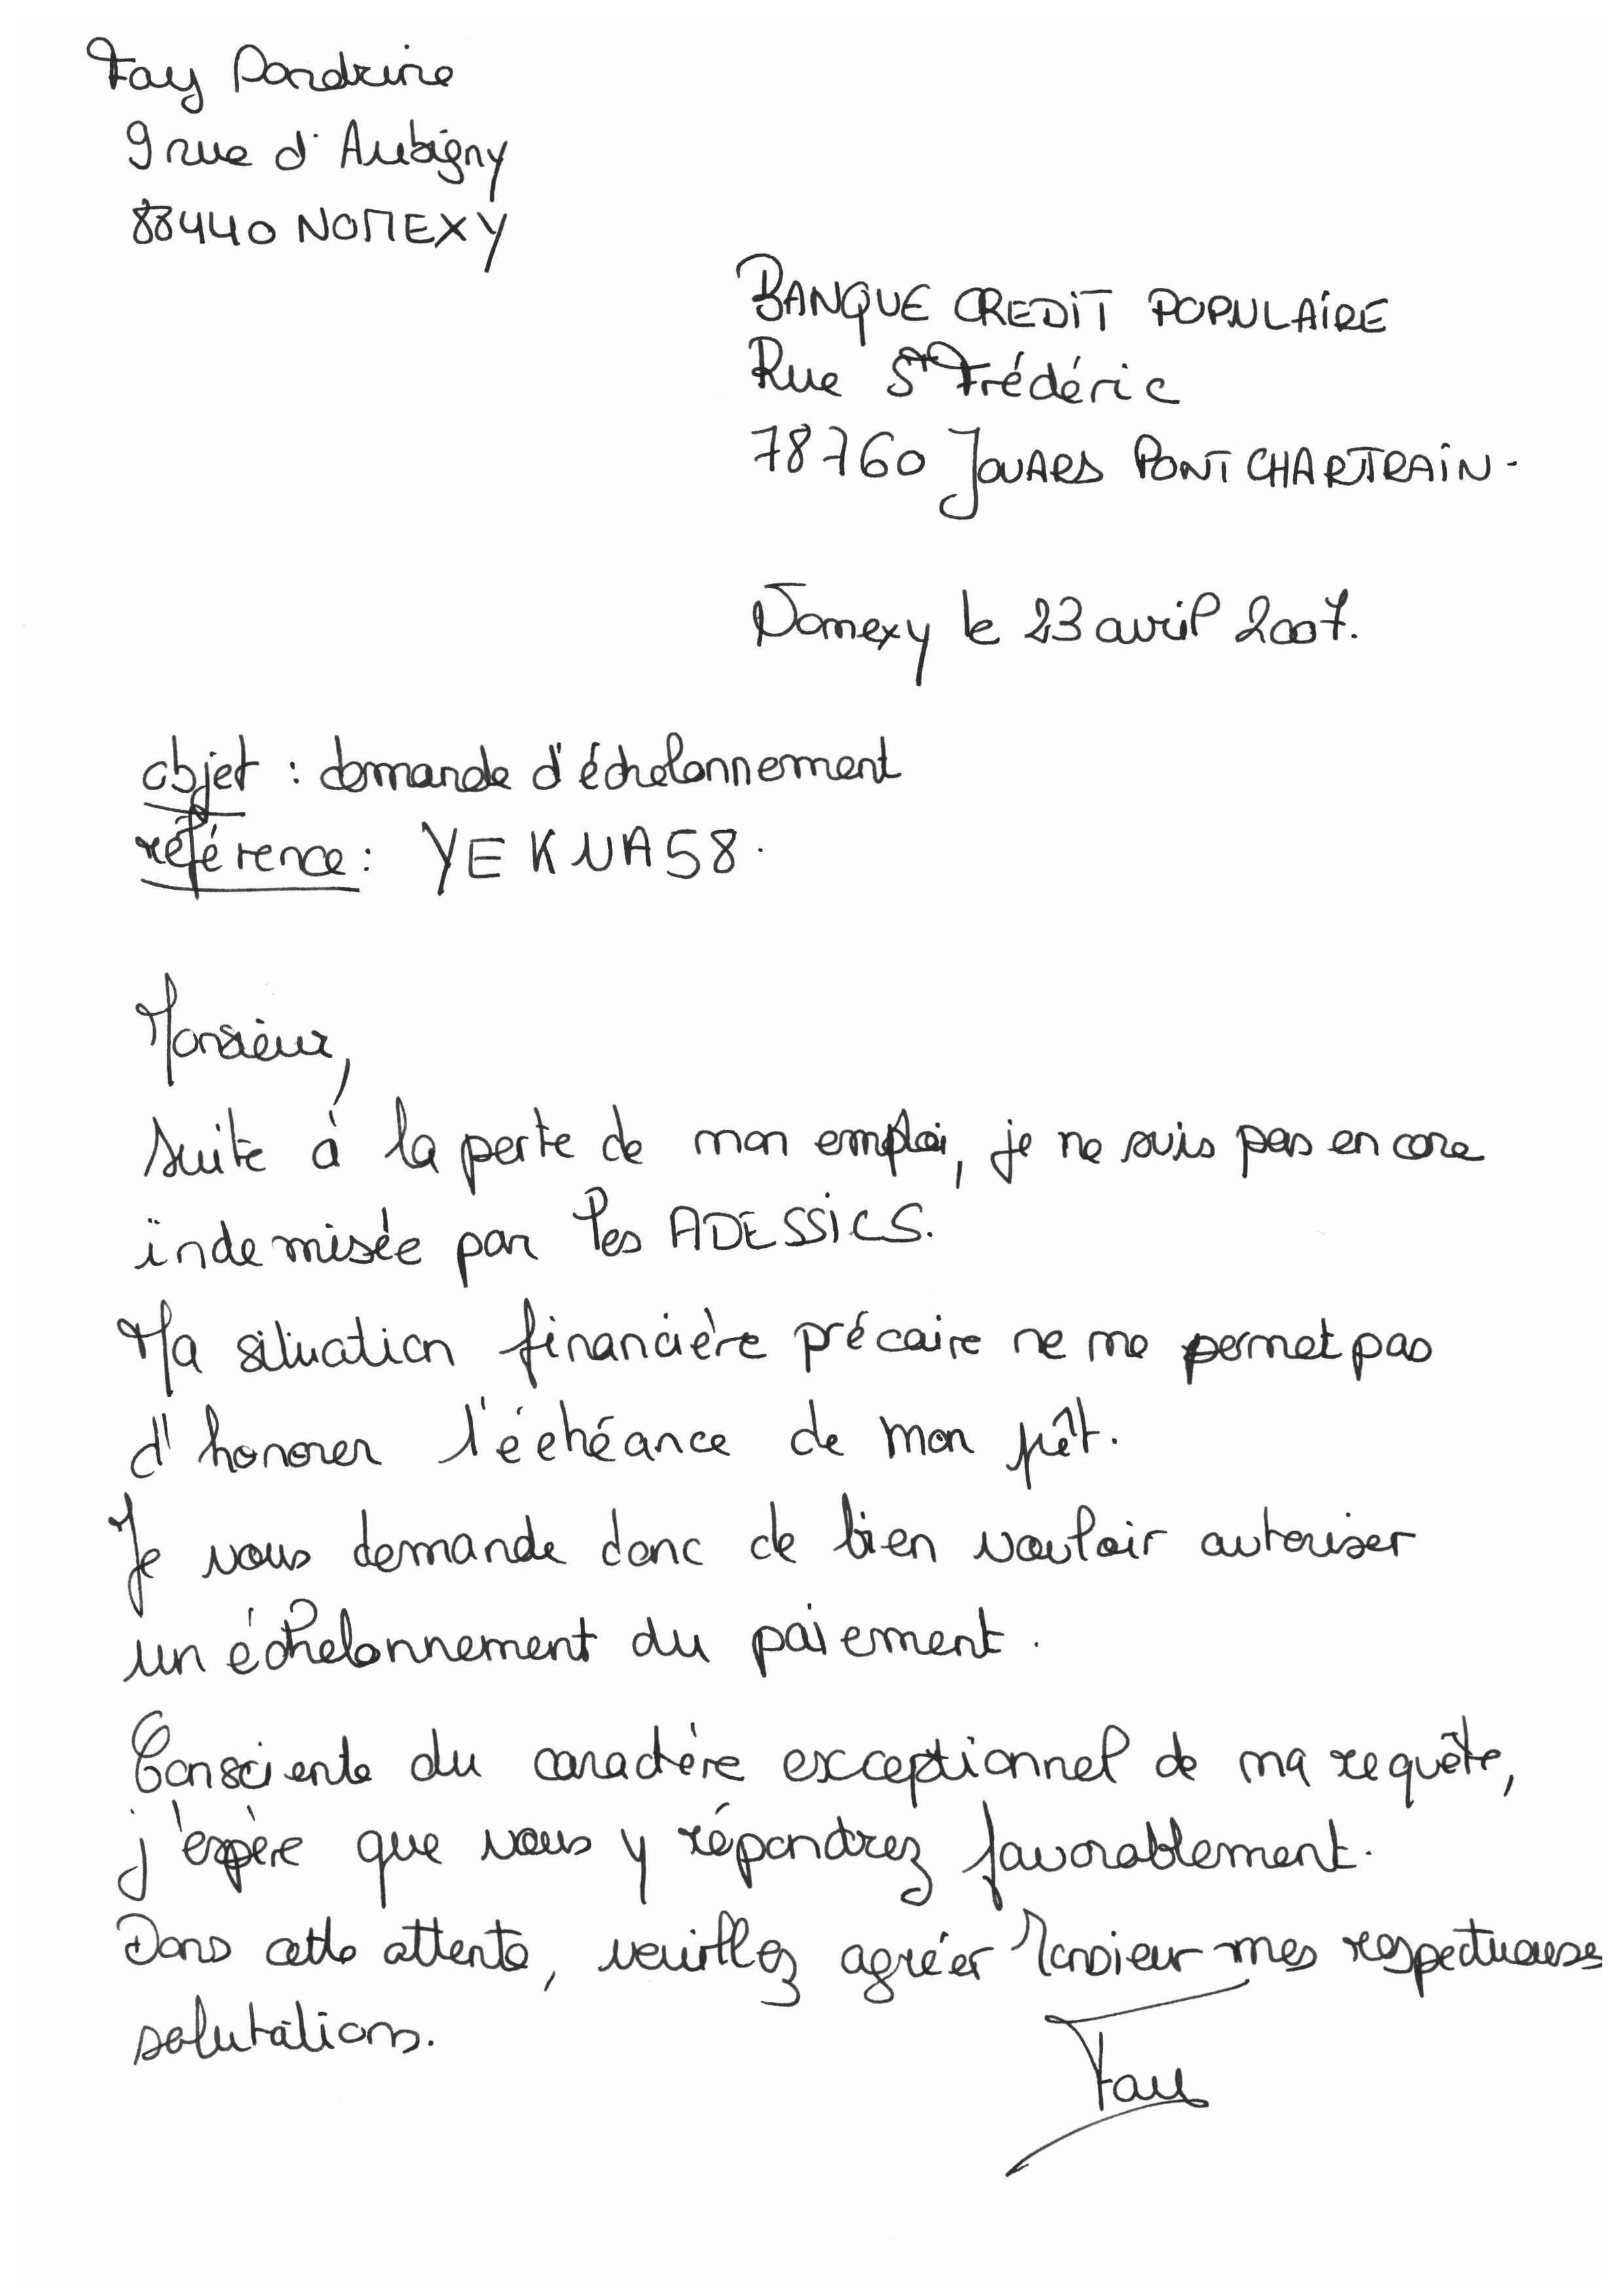 Fay Pandrine
9 rue d'Aubigny
88440 NOMEXY
BANQUE CREDIT POPULAIRE
Rue St Frédéric
78760 JOUARS PONTCHARTRAIN.
Nomexy le 23 avril 2007.
objet : demande d'échelonnement
référence : YEKNA58.
Monsieur,
suite à la perte de mon emploi, je ne suis pas encore
indemisée par les ADESSICS.
Ma situation financière précaire ne me permet pas
d'honorer l'échéance de mon prêt.
Je vous demande donc de bien vouloir autoriser
un échelonnement du paiement.
Consciente du caractère exceptionnel de ma requête,
j'espère que vous y répondrez favorablement.
Dans cette attente, veuillez agréer Monsieur mes respectueuses
salutations.
Fay